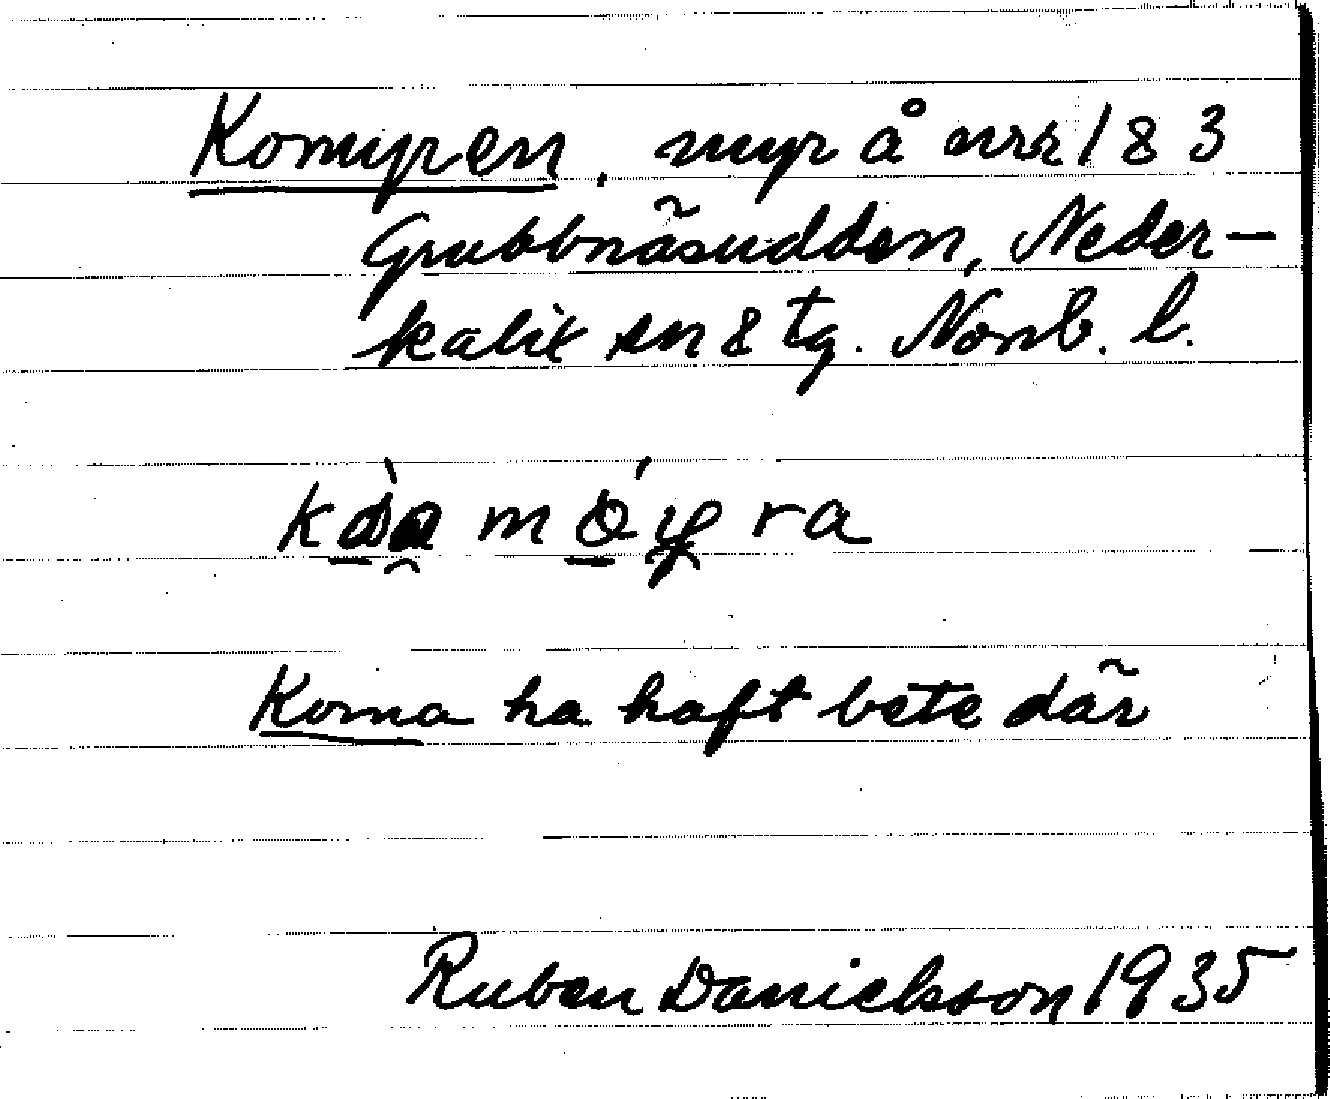 Komyren, myr å nr 183
Grubbnäsudden, Neder-
kalix sn & tg. Norrb. l.
Korna ha haft bete där
Ruben Danielsson 1935